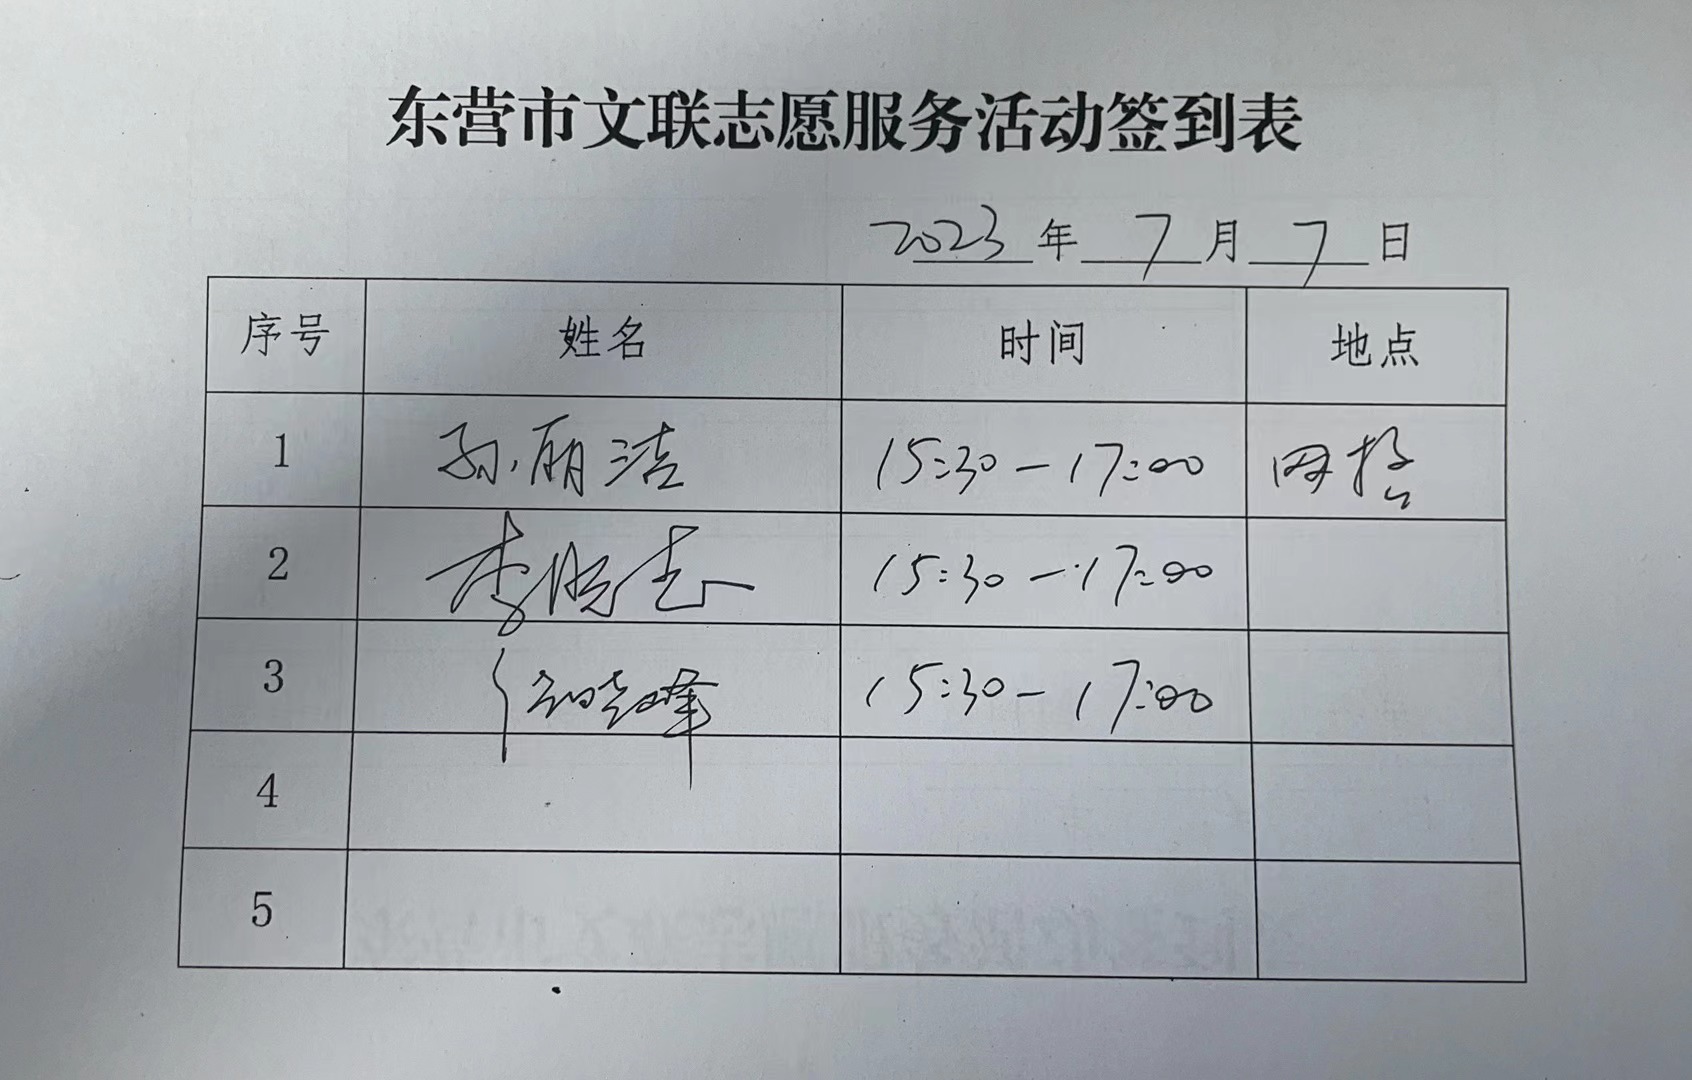 东营市文联志愿服务活动签到表
2023年 7月 7日
序号 姓名 时间 地点
1 孙丽洁 15:30-17:00
2 李晓志 15:30-17:00
3 晓峰 15:30-17:00
4
5